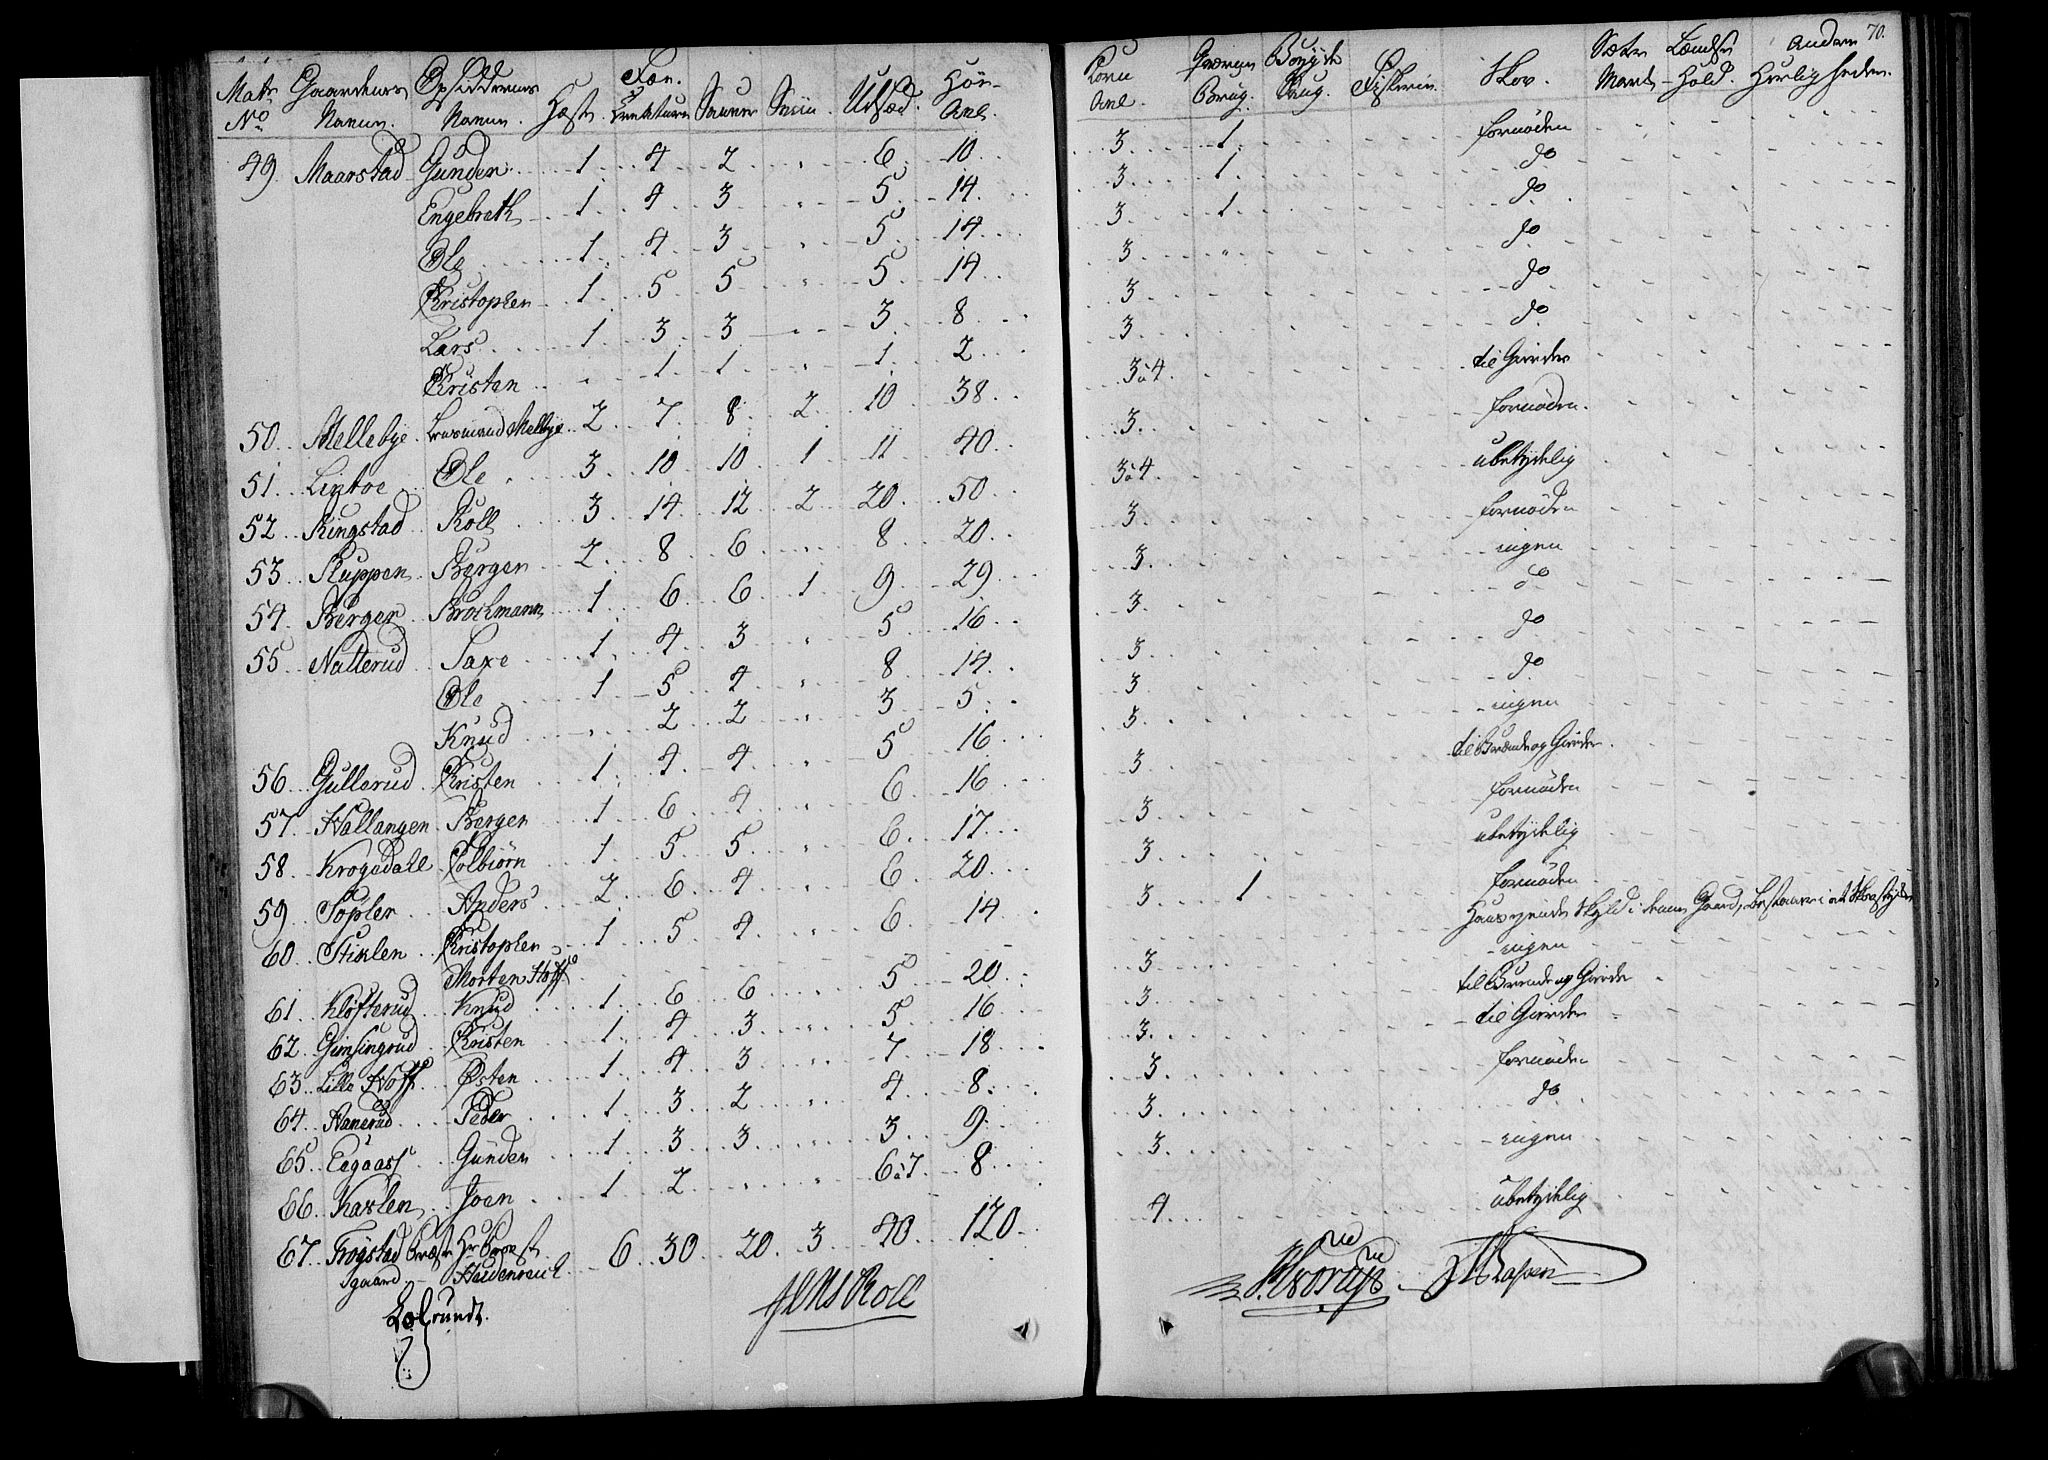 Matr Gaardenes Opsiddernes Fæe. Høe-
No Navne. Navne. Heste. Creaturer Sauer Sviin Udsæd. Avl.
49 Maarstad Gunder 1 4 2 " 6 10
Engebreth 1 4 3 " 5 14
Ole 1 4 3 " 5 14
Kristopher 1 5 5 " 5 14
Lars 1 3 3 " 3 8
Kristen " 1 1 " 1 2
50 Mellebye Melbye 2 7 8 2 10 38
51 Lintoe Ole 3 10 10 1 11 40
52 Ringstad Roll 3 14 12 2 20 50
53 Kuppen Berger 2 8 6 " 8 20
54 Berger Brochmann 1 6 6 1 9 29
55 Natterud Saxe 1 4 3 " 5 16
Ole 1 5 4 " 8 14
Knud " 2 2 " 3 5
56 Gullerud Kristen 1 4 4 " 5 16
57 Hallangen Berger 1 6 4 " 6 16
58 Krogsdahl Colbiørn 1 5 5 " 6 17
59 Topler Anders 2 6 4 " 6 20
60 Stiklen Kristopher 1 5 4 " 6 14
Morten Hoff
61 Kløfterud Knud 1 6 6 5 20
62 Gimsingrud Kristen 1 4 3 " 5 16
63 Lille Hoff Østen 1 4 3 " 7 18
64 Hanerud Peder 1 3 2 " 4 8
65 Eegaass Gunder 1 3 3 " 3 9
66 Kaslen Joen 1 2 " " 6 a 7 8
67 Trøgstad Præste- Hr Provst 6 30 20 3 40 120
gaard Heidenreich
LoGrundt. Roll
70.
Korn Qværne Bøyde Sæter Lændse Andre
Avl. Brug. Brug. Fiskerie. Skov. Mark Hold. Herligheder.
3 1 fornøden
3 1 do
3 1 do
3 " do
3 do
3 do
3 a 4 til Gierder
3 fornøden
3 a 4 ubetydelig
3 fornøden
3 ingen
3 do
3 do
3 do
3 ingen
3 til Brænde og Gierder
3 fornøden
3 ubetydelig
3 1 fornøden
Skyld i denne Gaard, bestaaer i
3 ingen
3 til Brænde og Gierde
3 til Gierder
3 fornøden
3 do
3 ingen
4 ubetydelig